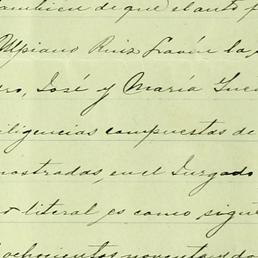 también de que el auto
Ulpiano Ruiz Pavón la
ro, José y María
diligencias compuestas de
mostradas, en el Juzgado
r literal es como sigue
ochocientos noventa y dos